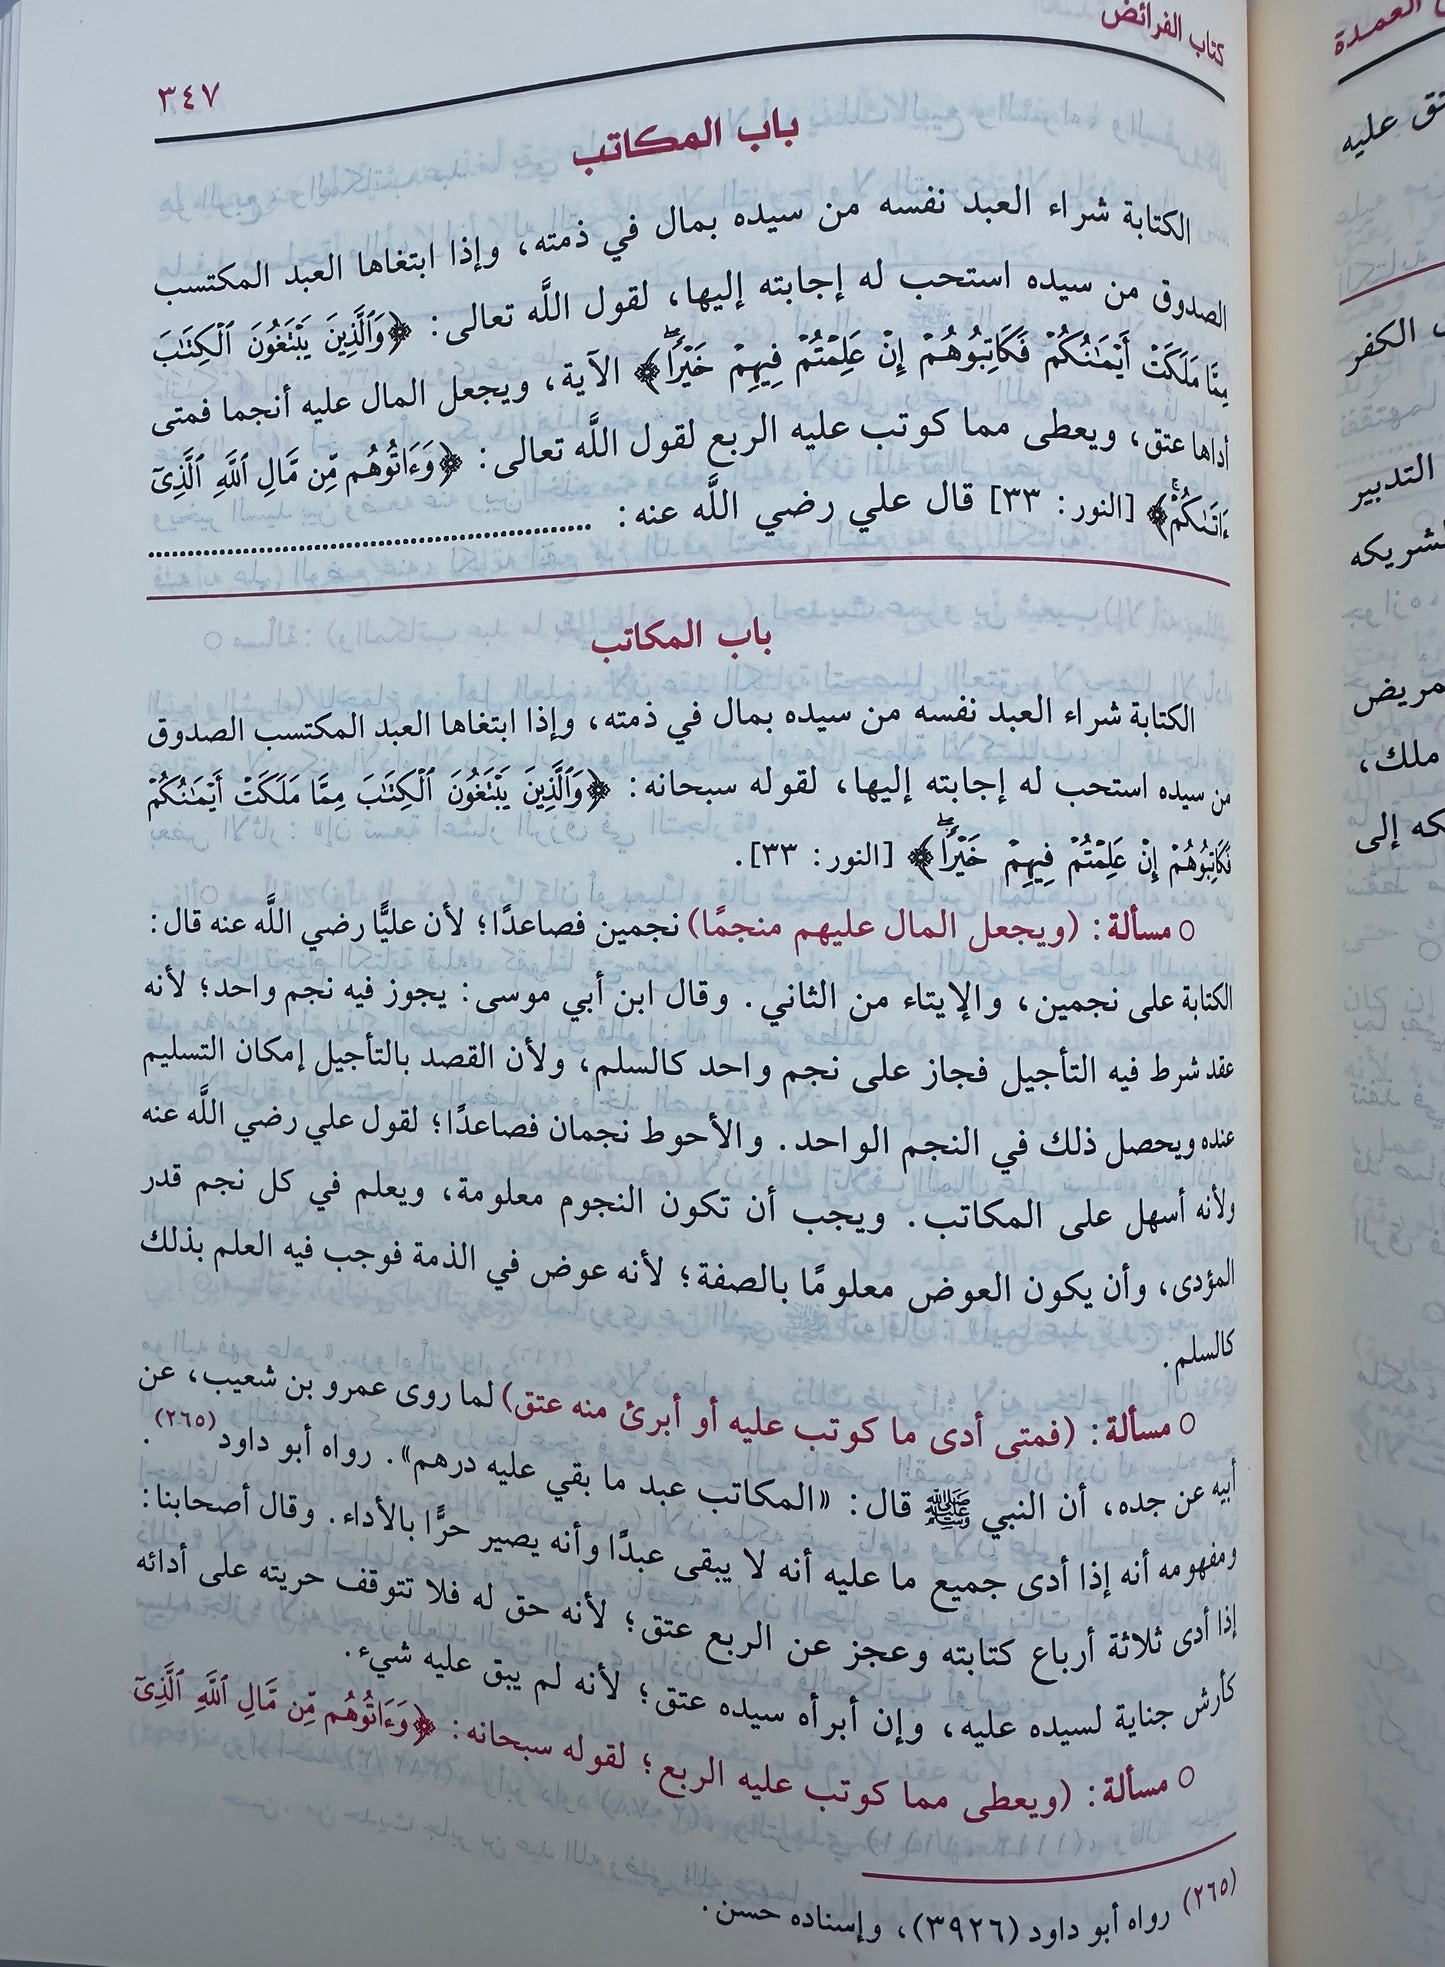 كتاب الفرائض
٣٤٧
باب المكاتب
الكتابة شراء العبد نفسه من سيده بمال في ذمته، وإذا ابتغاها العبد المكتسب
الصدوق من سيده استحب له إجابته إليها، لقول اللَّه تعالى: ﴿وَٱلَّذِينَ يَبْتَغُونَ ٱلْكِتَٰبَ
مِمَّا مَلَكَتْ أَيْمَٰنُكُمْ فَكَاتِبُوهُمْ إِنْ عَلِمْتُمْ فِيهِمْ خَيْرًاۖ﴾ الآية، ويجعل المال عليه أنجما فمتى
أداها عتق، ويعطى مما كوتب عليه الربع لقول اللَّه تعالى: ﴿وَءَاتُوهُم مِّن مَّالِ ٱللَّهِ ٱلَّذِىٓ
ءَاتَىٰكُمْۚ﴾ [النور: ٣٣] قال علي رضي اللَّه عنه: ........................................
باب المكاتب
الكتابة شراء العبد نفسه من سيده بمال في ذمته، وإذا ابتغاها العبد المكتسب الصدوق
من سيده استحب له إجابته إليها، لقوله سبحانه: ﴿وَٱلَّذِينَ يَبْتَغُونَ ٱلْكِتَٰبَ مِمَّا مَلَكَتْ أَيْمَٰنُكُمْ
فَكَاتِبُوهُمْ إِنْ عَلِمْتُمْ فِيهِمْ خَيْرًاۖ﴾ [النور: ٣٣].
○ مسألة: (ويجعل المال عليهم منجمًا) نجمين فصاعدًا؛ لأن عليًّا رضي اللَّه عنه قال:
الكتابة على نجمين، والإيتاء من الثاني. وقال ابن أبي موسى: يجوز فيه نجم واحد؛ لأنه
عقد شرط فيه التأجيل فجاز على نجم واحد كالسلم، ولأن القصد بالتأجيل إمكان التسليم
عنده ويحصل ذلك في النجم الواحد. والأحوط نجمان فصاعدًا؛ لقول علي رضي اللَّه عنه
ولأنه أسهل على المكاتب. ويجب أن تكون النجوم معلومة، ويعلم في كل نجم قدر
المؤدى، وأن يكون العوض معلومًا بالصفة؛ لأنه عوض في الذمة فوجب فيه العلم بذلك
كالسلم.
○ مسألة: (فمتى أدى ما كوتب عليه أو أبرئ منه عتق) لما روى عمرو بن شعيب، عن
أبيه عن جده، أن النبي ﷺ قال: «المكاتب عبد ما بقي عليه درهم». رواه أبو داود(٢٦٥).
ومفهومه أنه إذا أدى جميع ما عليه أنه لا يبقى عبدًا وأنه يصير حرًّا بالأداء. وقال أصحابنا:
إذا أدى ثلاثة أرباع كتابته وعجز عن الربع عتق؛ لأنه حق له فلا تتوقف حريته على أدائه
كأرش جناية لسيده عليه، وإن أبرأه سيده عتق؛ لأنه لم يبق عليه شيء.
○ مسألة: (ويعطى مما كوتب عليه الربع؛ لقوله سبحانه: ﴿وَءَاتُوهُم مِّن مَّالِ ٱللَّهِ ٱلَّذِىٓ
(٢٦٥) رواه أبو داود (٣٩٢٦)، وإسناده حسن.
العمدة
عليه
الكفر
التدبير
ملك،
إلى